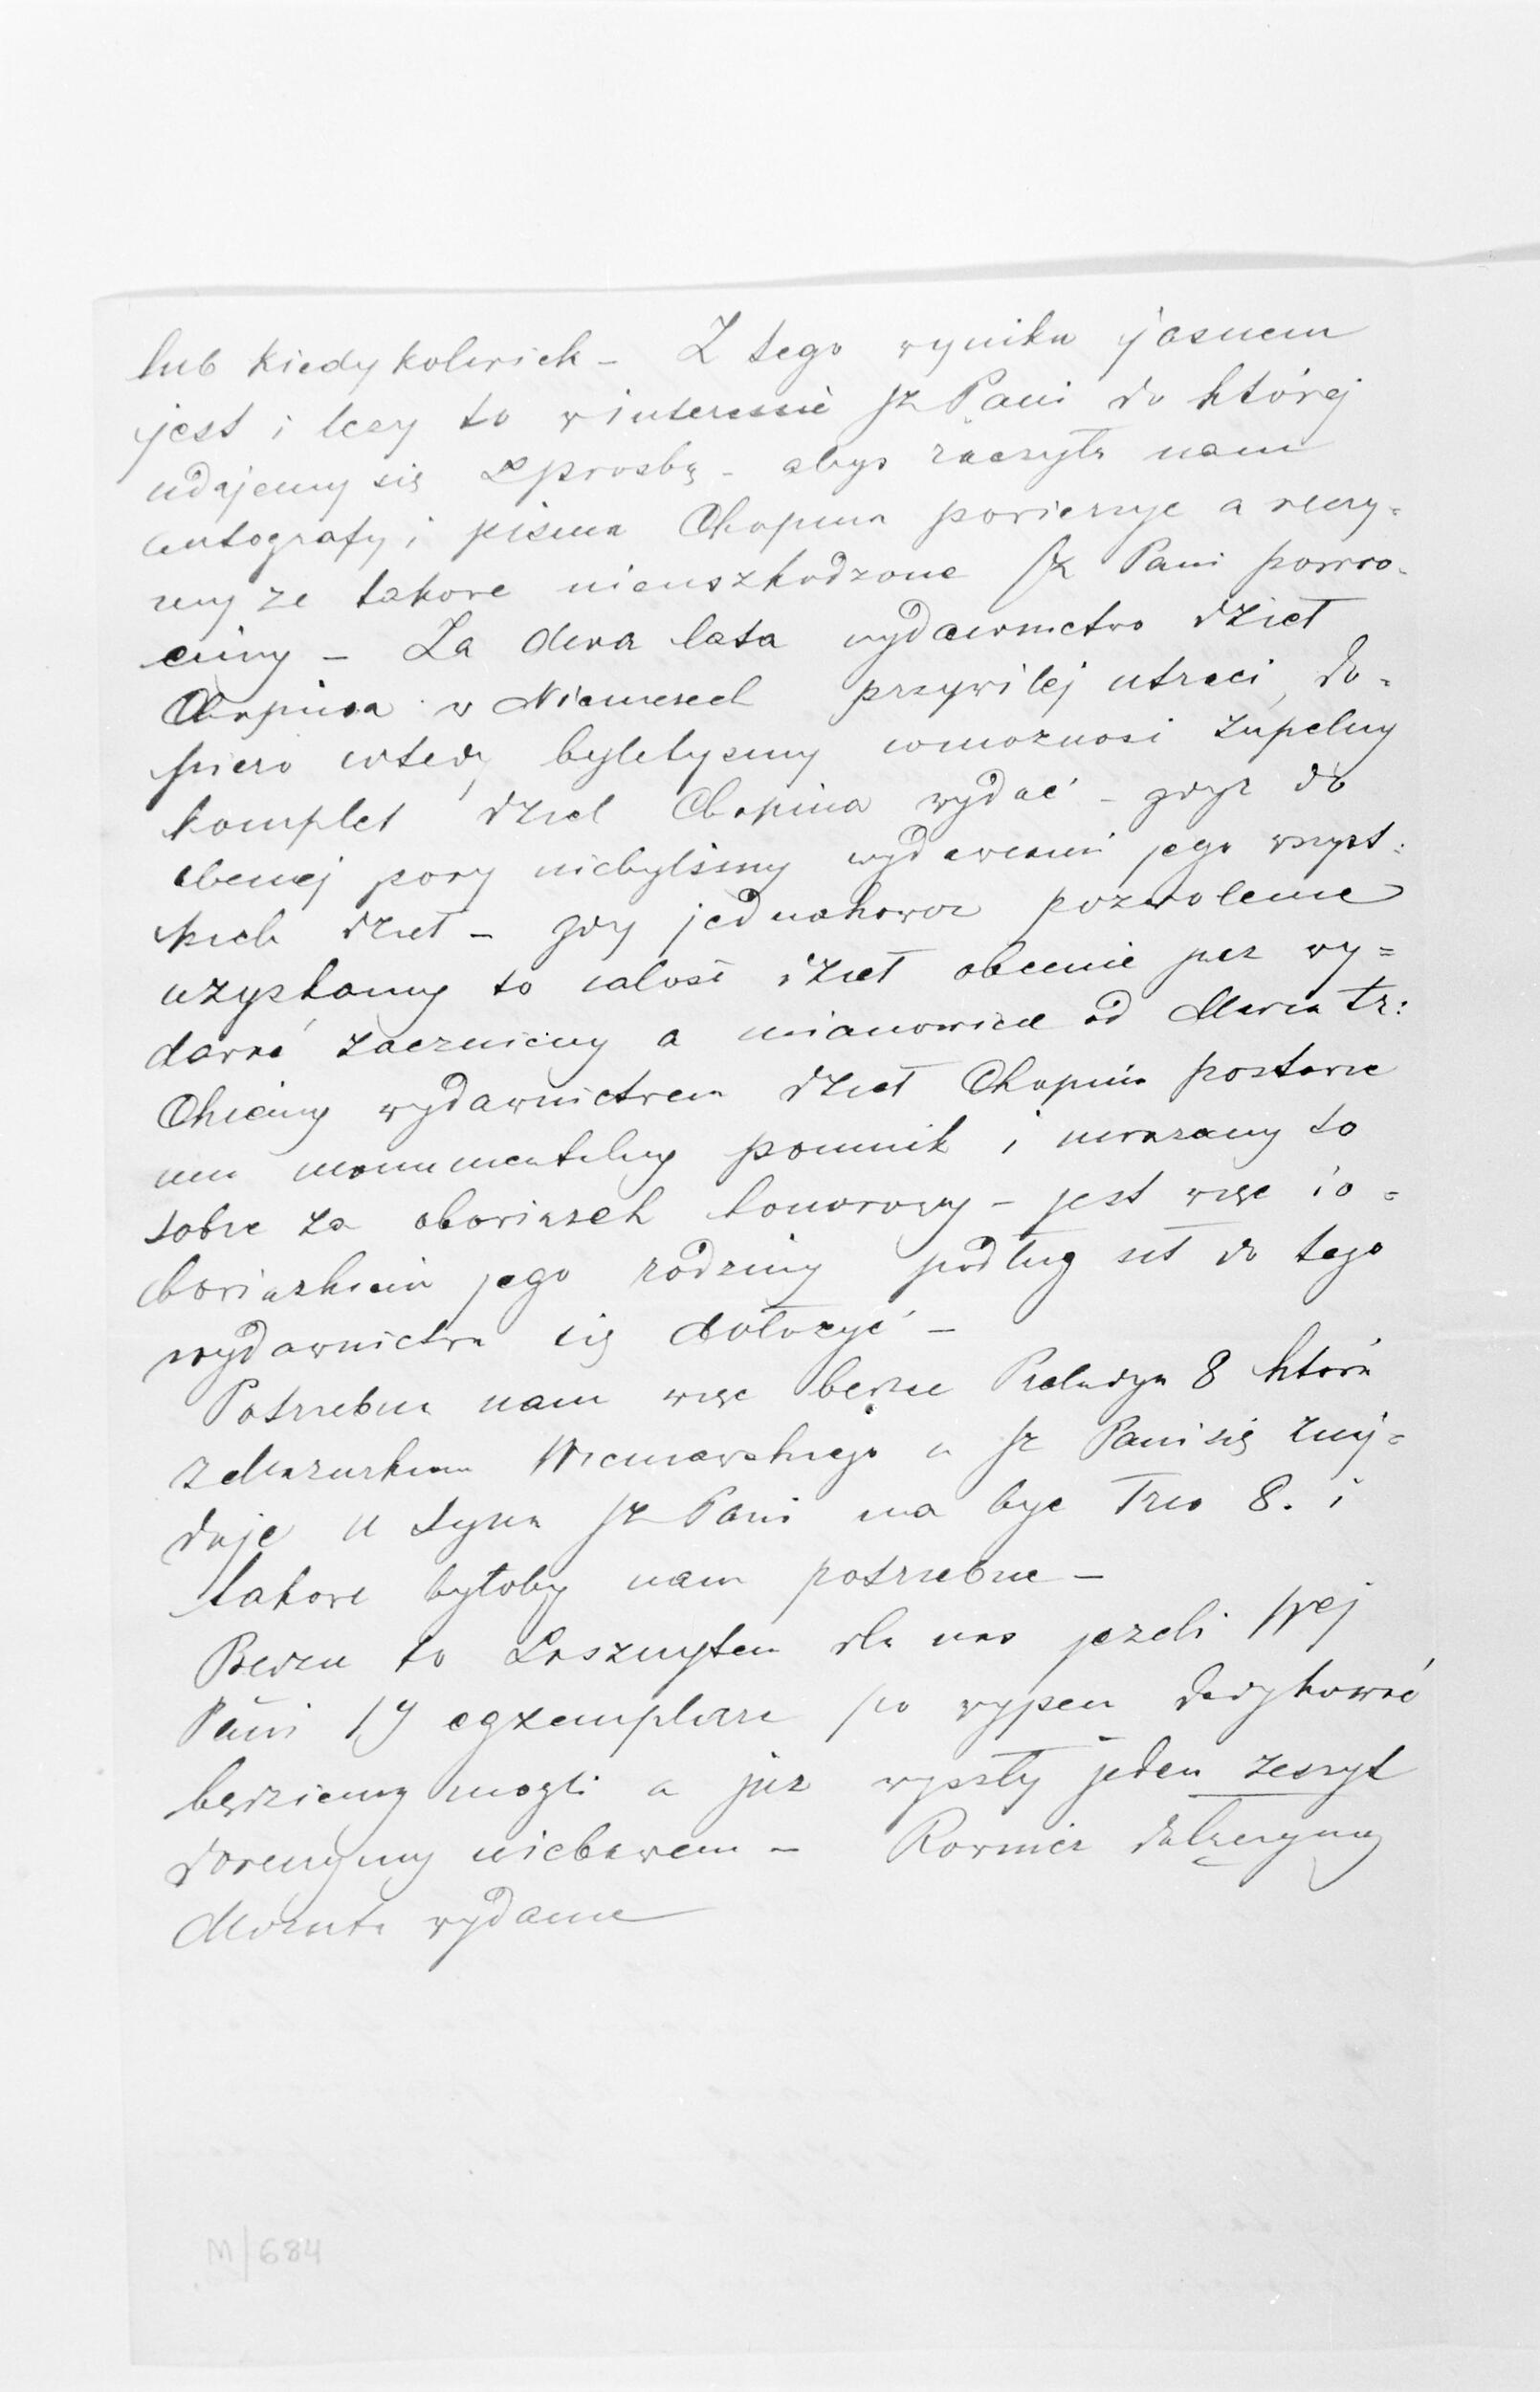 lub kiedykolwiek – Z tego wyniku jasnem
jest i lezy to w interessie Sz Pani do której
udajemy się z prosbą – abys raczyła nam
autografy i pisma Chopina powierzyc a reczy-
my ze takowe nieuszkodzone Sz Pani powro-
cimy – Za dwa lata wydawnictwo dzieł
Chopina w Niemczech przywilej utraci, do-
piero wtedy bylibysmy w moznosi zupelny
komplet dziel Chopina wydać – gdyz do
obecnej pory niebylismy wydawcami jego wszyst-
kich dzieł – gdy jednakowoz pozwolenie
uzyskamy to całość dzieł obecnie juz wy=
dawać zaczniemy a mianowicie od Marca tr:
Chcemy wydawnictwem dzieł Chopina postawic
mu monumentalny pomnik i uwazamy to
sobie za obowiazek honorowy – jest więc i o=
bowiazkiem jego rodziny podług sił do tego
wydawnictwa się dołozyć –
Potrzebne nam więc bedzie Preludya 8 która
z Mazurkiem Wieniawskiego u Sz Pani się znaj=
duje u Syna Sz Pani ma byc Trio 8. i
takowe byłoby nam potrzebne –
Bedzie to Zaszczytem dla nas jezeli Wej
Pani 1 egzemplarz po wyjsciu dedykować
będziemy mogli a juz wyszły jeden zeszyt
doreczymy niebawem – Rowniez dołączymy
Mozarta wydanie
M/684